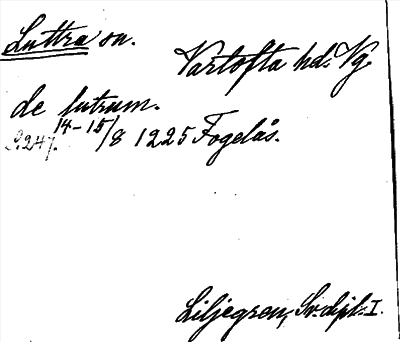 Luttra sn.
Vartofta hd. Vg.
de lutrum.
S. 247. 14-15/8 1225 Fogelås.
Liljegren, Sv. dipl. I.